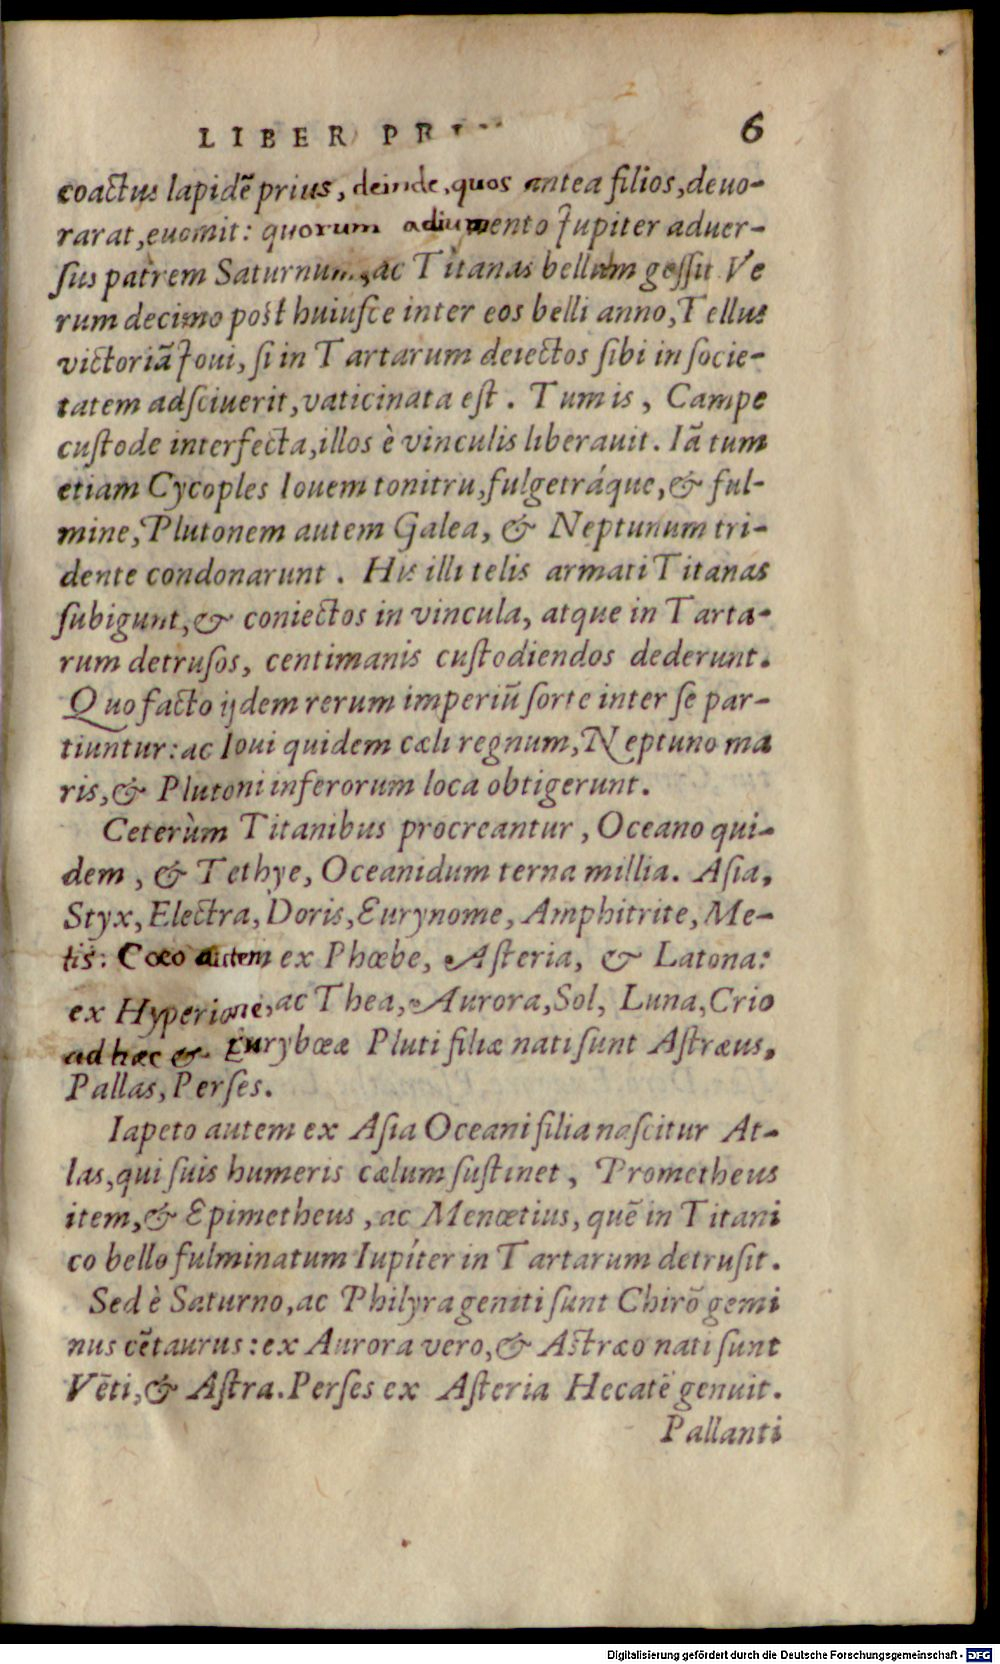 LIBER PR
6
coactus lapidē prius, deinde, quos antea filios, deuo-
rarat, euomit: quorum adiumento Jupiter aduer-
ſus patrem Saturnum, ac Titanas bellum geſſit Ve
rum decimo poſt huiuſce inter eos belli anno, Tellus
victoriā Joui, ſi in Tartarum deiectos ſibi in ſocie-
tatem adſciuerit, vaticinata eſt. Tum is, Campe
cuſtode interfecta, illos è vinculis liberauit. Iā tum
etiam Cycoples Iouem tonitru, fulgetráque, & ful-
mine, Plutonem autem Galea, & Neptunum tri-
dente condonarunt. His illi telis armati Titanas
ſubigunt, & coniectos in vincula, atque in Tarta-
rum detruſos, centimanis cuſtodiendos dederunt.
Quo facto ijdem rerum imperiū ſorte inter ſe par-
tiuntur: ac Ioui quidem cæli regnum, Neptuno ma
ris, & Plutoni inferorum loca obtigerunt.
Ceterùm Titanibus procreantur, Oceano qui-
dem, & Tethye, Oceanidum terna millia. Aſia,
Styx, Electra, Doris, Eurynome, Amphitrite, Me-
tis: Cœo autem ex Phœbe, Aſteria, & Latona:
ex Hyperione, ac Thea, Aurora, Sol, Luna, Crio
ad hæc & Eurybœa Pluti filiæ nati ſunt Aſtræus,
Pallas, Perſes.
Iapeto autem ex Aſia Oceani filia naſcitur At-
las, qui ſuis humeris cælum ſuſtinet, Prometheus
item, & Epimetheus, ac Menœtius, quē in Titani
co bello fulminatum Iupíter in Tartarum detruſit.
Sed è Saturno, ac Philyra geniti ſunt Chirō gemi
nus cētaurus: ex Aurora vero, & Aſtræo nati ſunt
Vēti, & Aſtra. Perſes ex Aſteria Hecatē genuit.
Pallanti
Digitalisierung gefördert durch die Deutsche Forschungsgemeinschaft - DFG